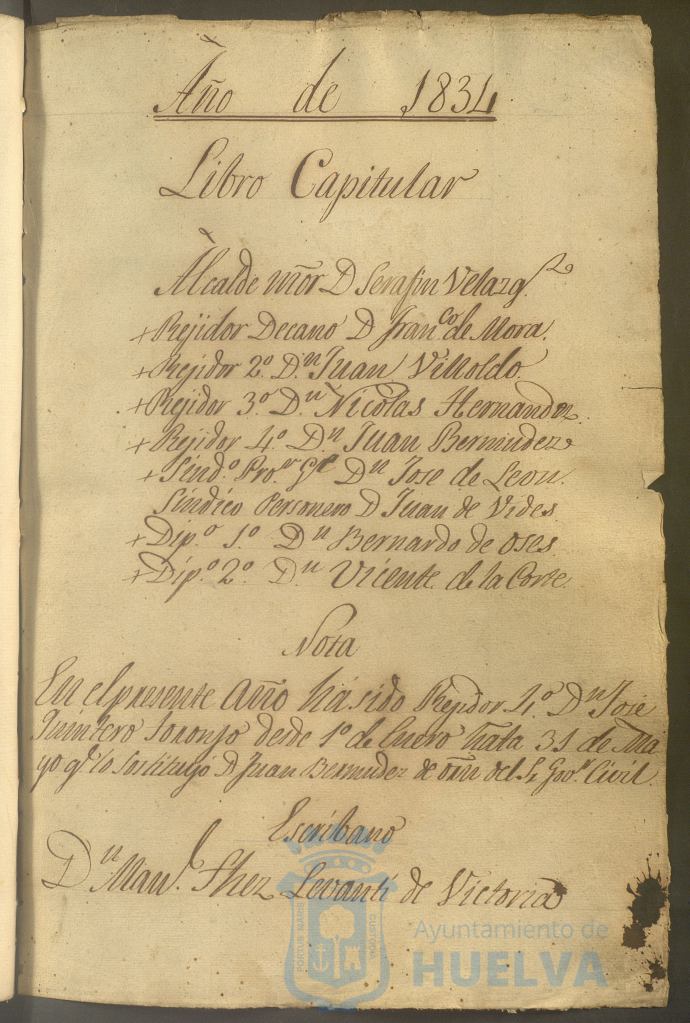 Año de 1834
Libro Capitular
Alcalde mõr D Serafin Velazqz
+ Rejidor Decano D Franco de Mora.
+ Rejidor 2º Dn Juan Villoldo
+ Rejidor 3º Dn Nicolas Hernandez
+ Rejidor 4º Dn Juan Bermudez
+ Sindo Pror Gl Dn Jose de Leon.
Síndico Personero D Juan de Vides
+ Dipo 1º Dn Bernardo de Oses
+ Dipo 2º Dn Vicente de la Corte
Nota
En el presente Año há sido Rejidor 4º Dn José
Quintero Soronjo desde 1º de Enero hata 31 de Ma
yo qe lo sostituyó D Juan Bermudez de orñ del Sr Gobr Civil
Escribano
Dn Manl Shez Levanti de Victoria
PORTUS MARIS
CUSTODIA
Ayuntamiento de
HUELVA